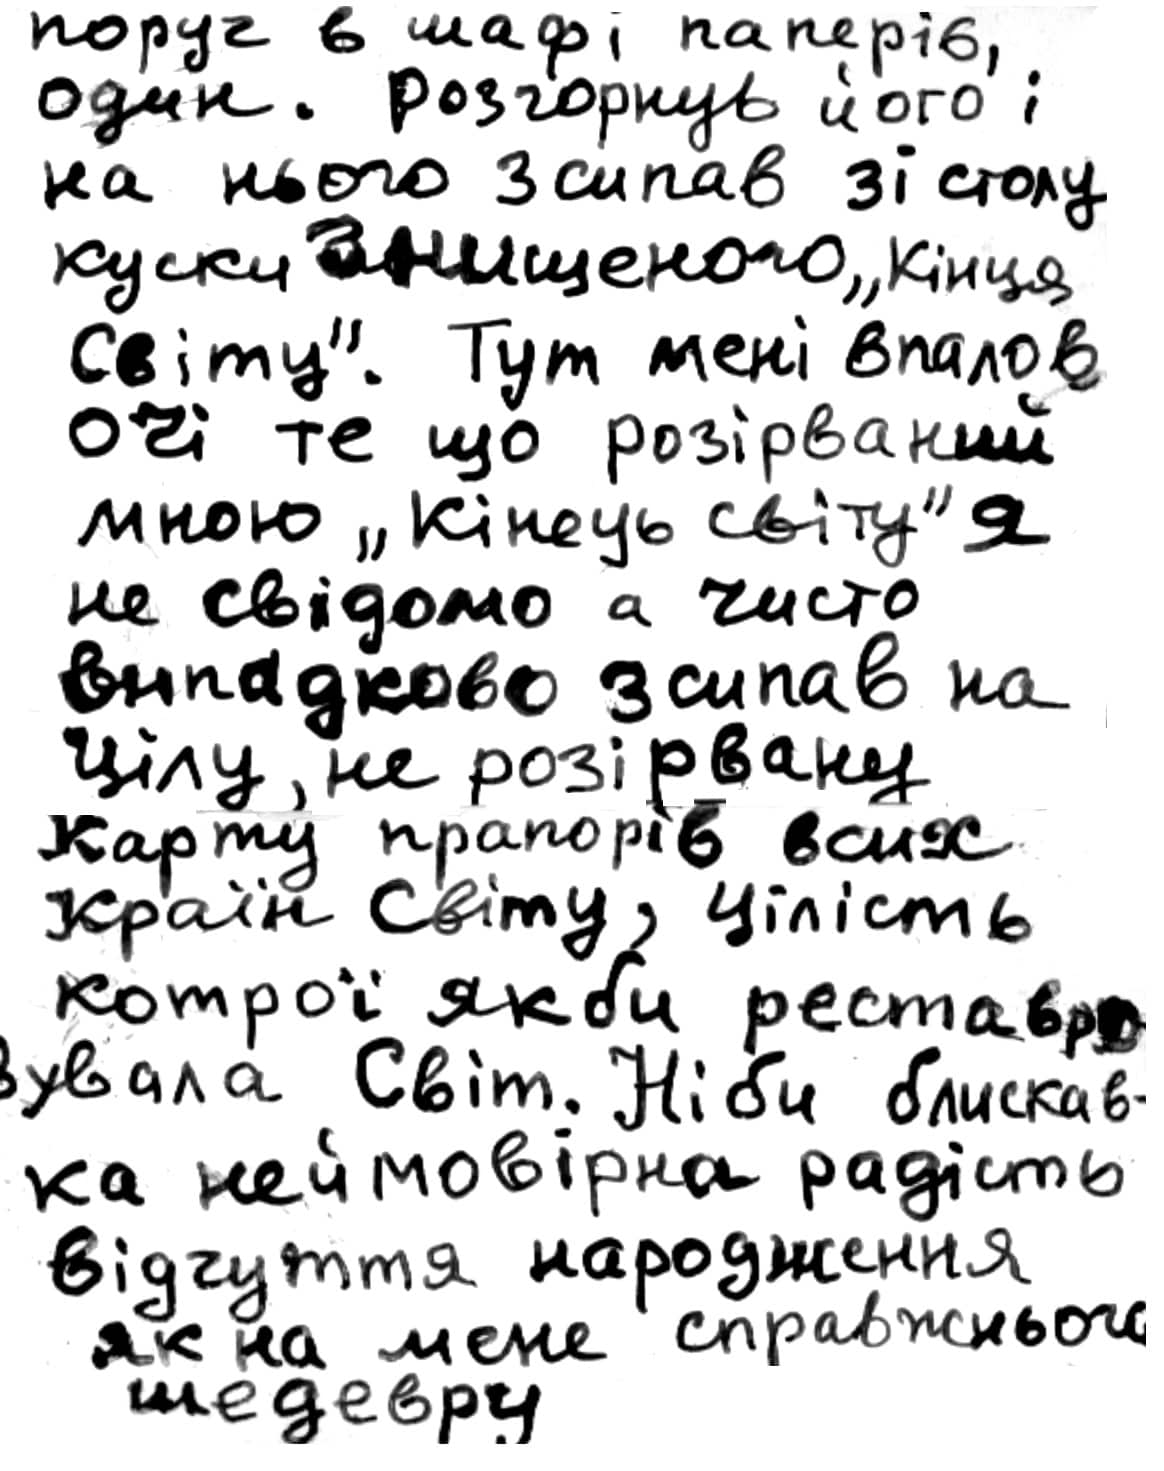 поруч в шафі паперів,
один. Розгорнув його і
на нього зсипав зі столу
куски Знищеного „Кінця
Світу". Тут мені впало в
очі те що розірваний
мною „Кінець світу" я
не свідомо а чисто
випадково зсипав на
цілу, не розірвану
карту прапорів всих
країн Світу, цілість
котрої якби реставро
вувала Світ. Ніби блискав-
ка неймовірна радість
відчуття народження
як на мене справжнього
шедевру